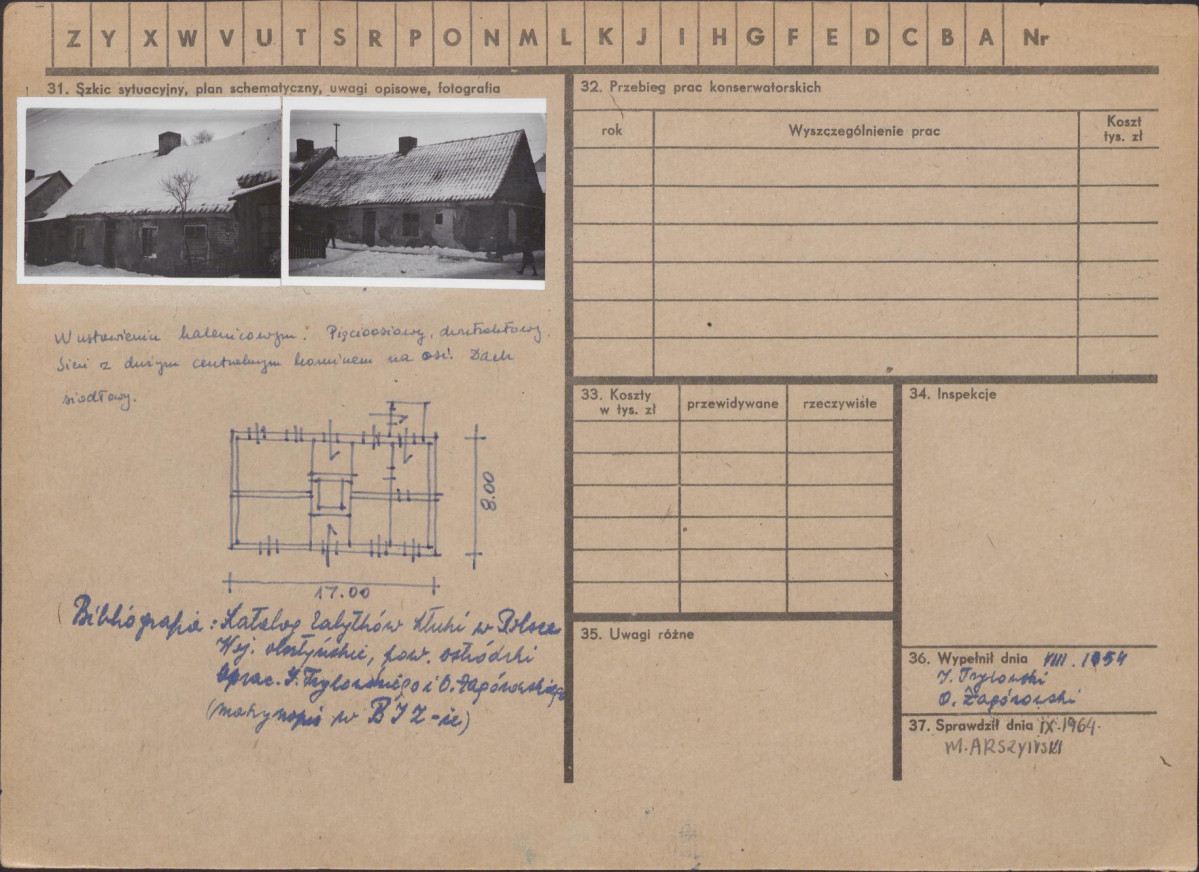 Z Y X W V U T S R P O N M L K J I H G F E D C B A Nr
31. Szkic sytuacyjny, plan schematyczny, uwagi opisowe, fotografia
W ustawieniu kalenicowym. Pięcioosiowy, dwutraktowy.
Sień z dużym centralnym kominem na osi. Dach
siodłowy.
8.00
17.00
Bibliografia: Katalog Zabytków Sztuki w Polsce
Woj. olsztyńskie, pow. ostródzki
oprac. J. Frycowskiego i O. Zagórowskiego
(maszynopis w BIZ-ie)
32. Przebieg prac konserwatorskich
rok
Wyszczególnienie prac
Koszt
tys. zł
33. Koszty
w tys. zł
przewidywane
rzeczywiste
34. Inspekcje
35. Uwagi różne
36. Wypełnił dnia VIII. 1954
O. Zagórowski
37. Sprawdził dnia IX.1964.
M. ARSZYŃSKI